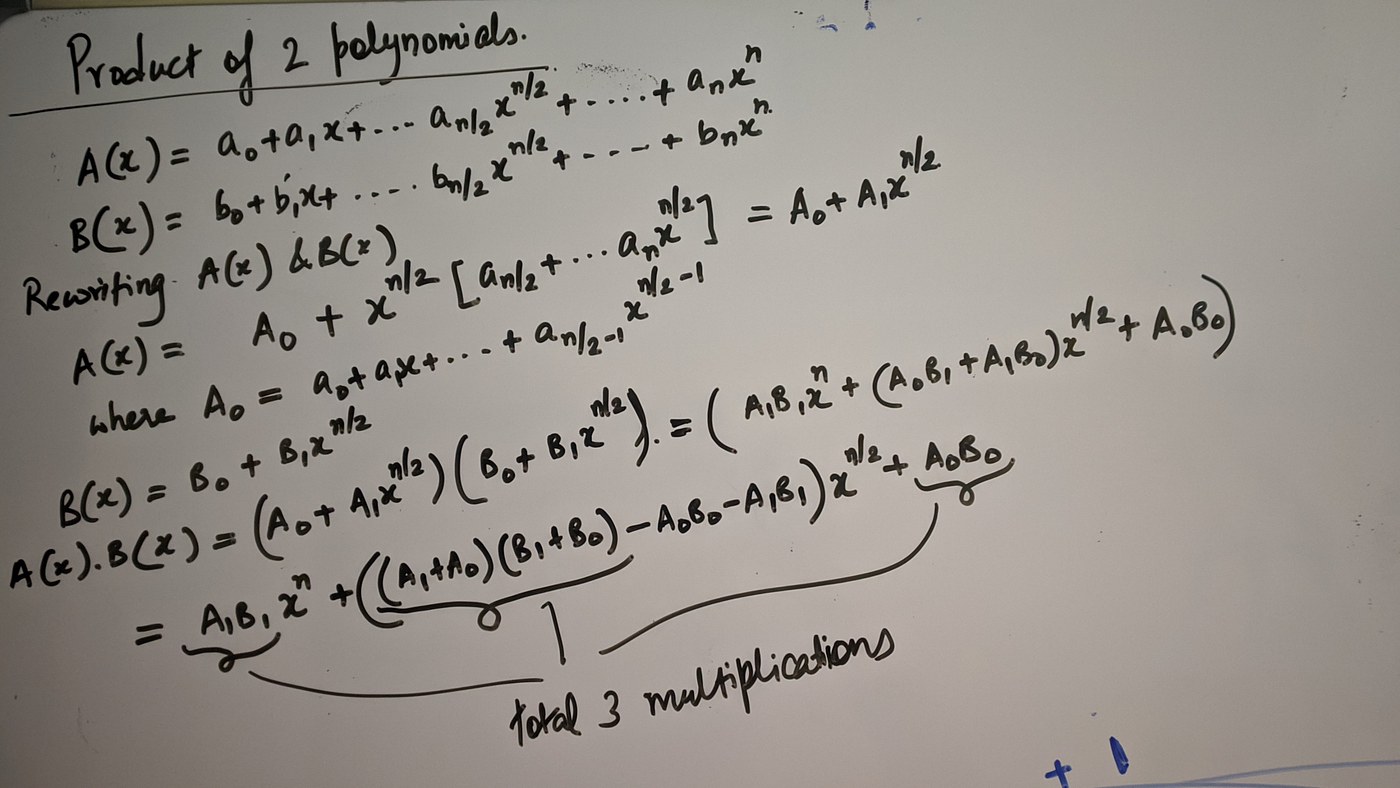 Product of 2 polynomials.
A(x) = a₀ + a₁x + ... a_{n/2} x^{n/2} + ..... + aₙxⁿ
B(x) = b₀ + b₁x + ..... b_{n/2} x^{n/2} + ---- + bₙxⁿ
Rewriting A(x) & B(x)
A(x) = A₀ + x^{n/2} [a_{n/2} + ... aₙx^{n/2}] = A₀ + A₁x^{n/2}
where A₀ = a₀ + a₁x + .... + a_{n/2-1} x^{n/2-1}
B(x) = B₀ + B₁x^{n/2}
A(x).B(x) = (A₀ + A₁x^{n/2}) (B₀ + B₁x^{n/2}). = (A₁B₁xⁿ + (A₀B₁ + A₁B₀)x^{n/2} + A₀B₀)
= A₁B₁xⁿ + ((A₁+A₀)(B₁+B₀) - A₀B₀ - A₁B₁)x^{n/2} + A₀B₀
total 3 multiplications